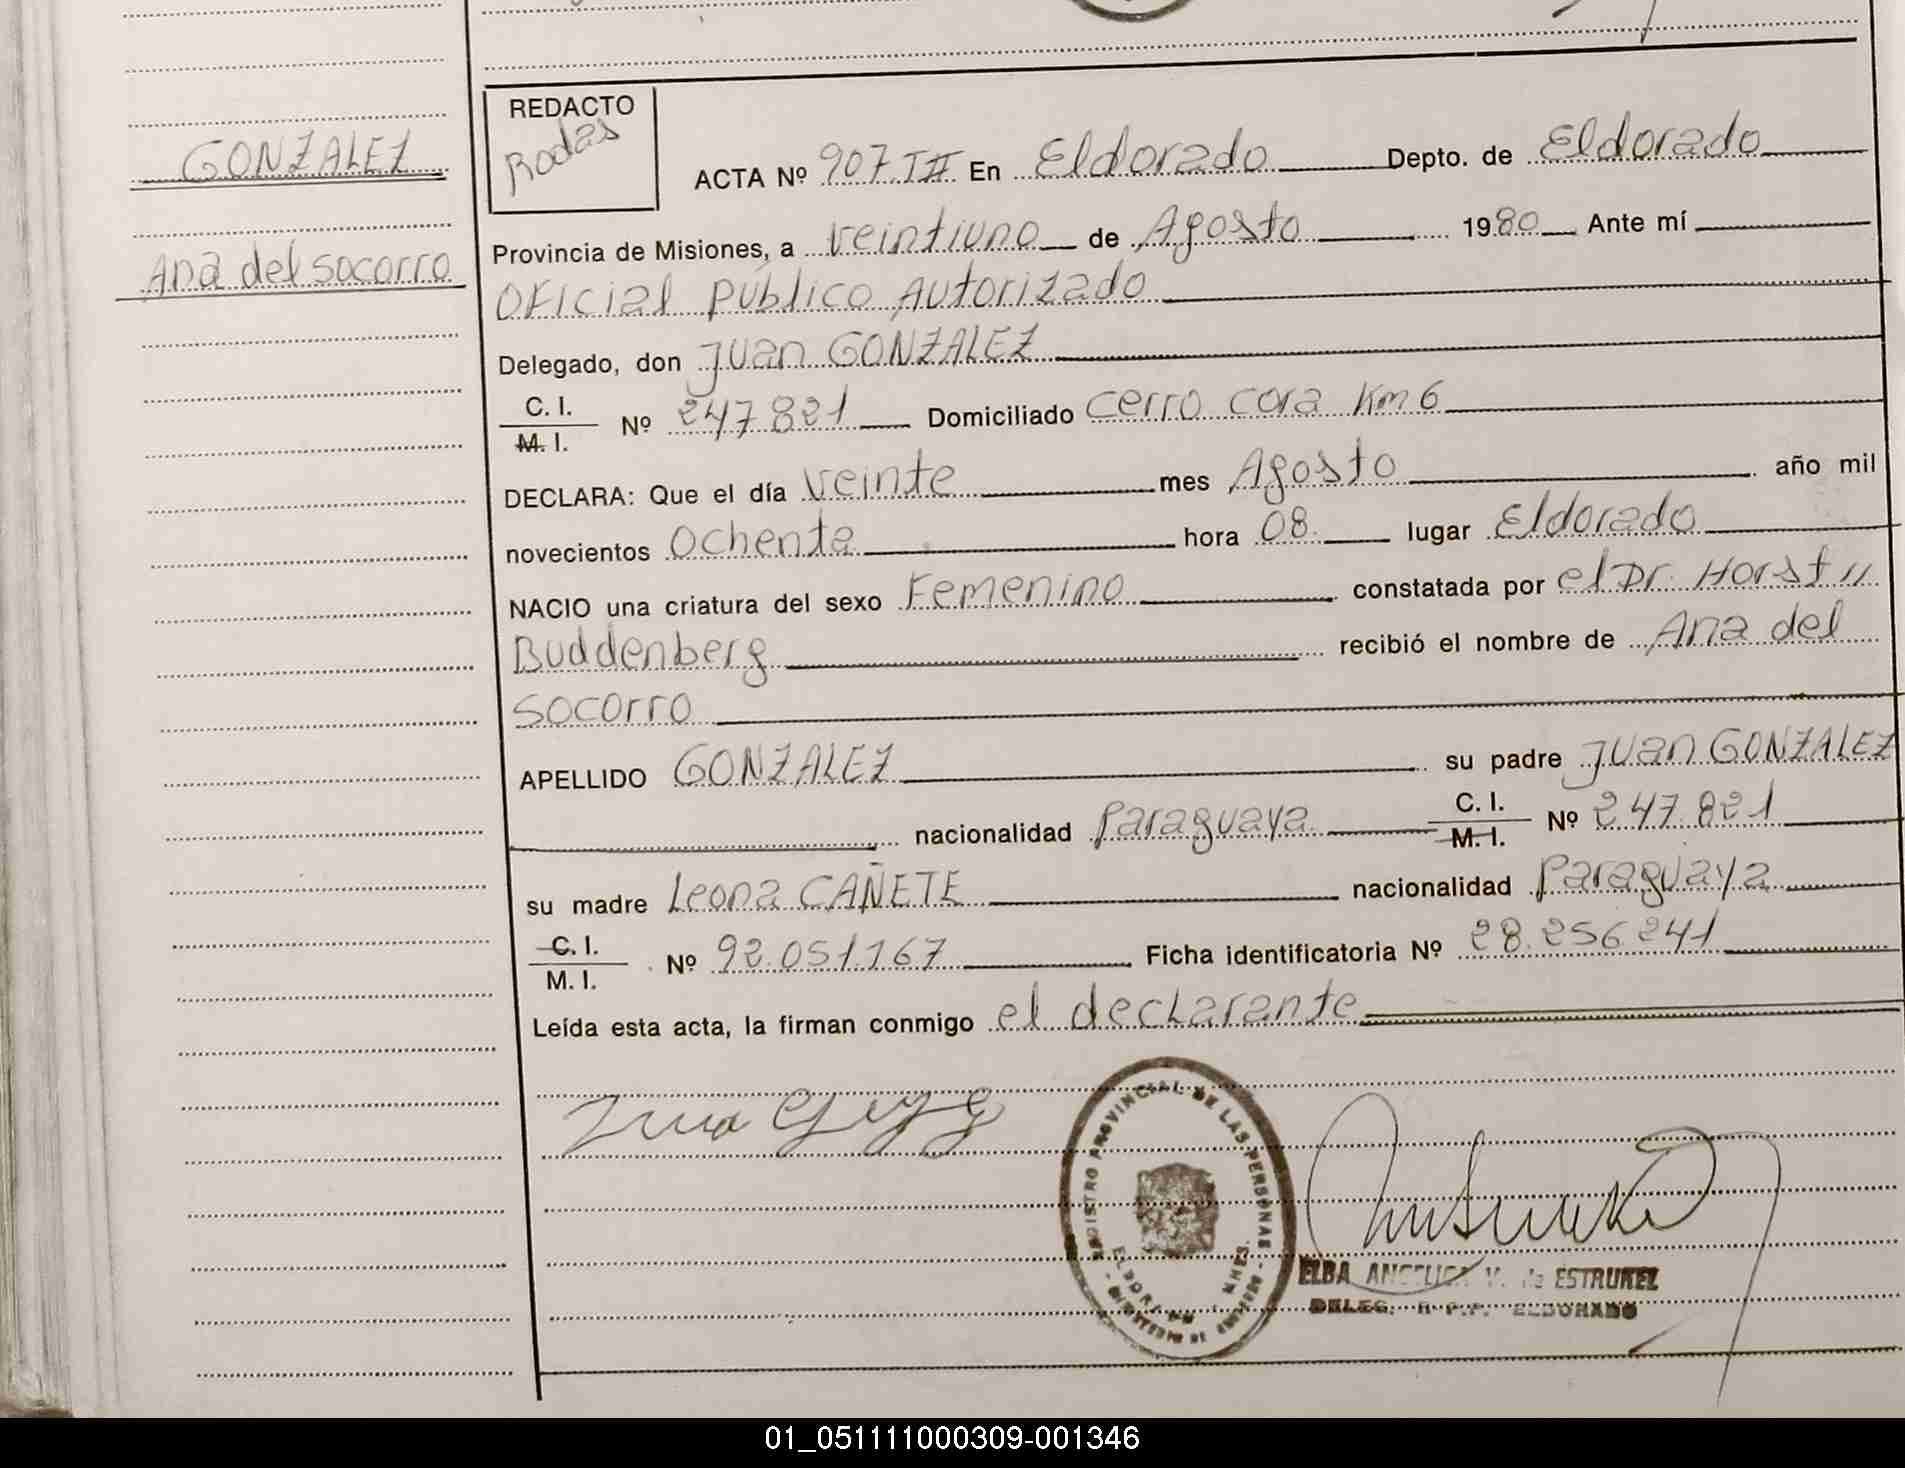 GONZALEZ
Ana del socorro
REDACTO
Rodas
ACTA Nº 907 TII En Eldorado Depto. de Eldorado
Provincia de Misiones, a veintiuno de Agosto 1980 Ante mí
Oficial Público Autorizado
Delegado, don Juan GONZALEZ
C. I.
M. I.
Nº 247.821 Domiciliado Cerro cora Km 6
DECLARA: Que el día veinte mes Agosto año mil
novecientos Ochenta hora 08 lugar Eldorado
NACIO una criatura del sexo Femenino constatada por el Dr. Horst "
Buddenberg recibió el nombre de Ana del
socorro
APELLIDO GONZALEZ su padre Juan GONZALEZ
nacionalidad Paraguaya C. I. M. I. Nº 247.821
su madre Leona CAÑETE nacionalidad Paraguaya
C. I.
M. I.
Nº 92.051.167 Ficha identificatoria Nº 28.256.241
Leída esta acta, la firman conmigo el declarante
REGISTRO PROVINCIAL DE LAS PERSONAS
ELDORADO MNES.
ELBA ANGELICA V. de ESTRUKEL
DELEG. R.P.P. ELDORADO
01_051111000309-001346